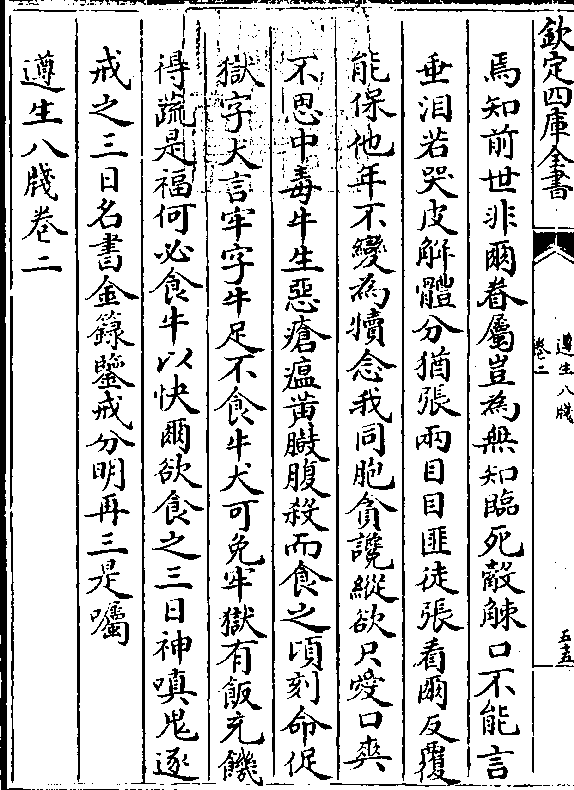 欽定四庫全書
遵生八牋
卷二
五十五
焉知前世非爾眷屬豈為無知臨死觳觫口不能言
垂泪若哭皮解體分猶張兩目目匪徒張看爾反覆
能保他年不變為犢念我同胞貪讒縱欲只愛口爽
不思中毒牛生惡瘡瘟黄臌腹殺而食之頃刻命促
獄字犬言牢字牛足不食牛犬可免牢獄有飯充饑
得蔬是福何必食牛以快爾欲食之三日神嗔鬼逐
戒之三日名書金籙鑒戒分明再三是囑
遵生八牋卷二